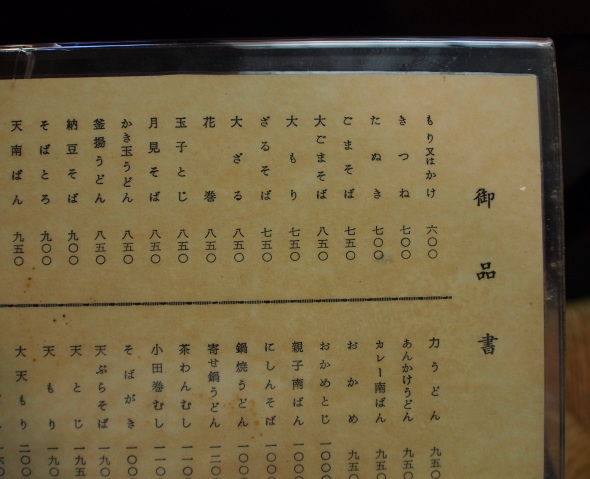 御品書
もり又はかけ 六〇〇
きつね 七〇〇
たぬき 七〇〇
ごまそば 七五〇
大ごまそば 八五〇
大もり 七五〇
ざるそば 七五〇
大ざる 八五〇
花巻 八五〇
玉子とじ 八五〇
月見そば 八五〇
かき玉うどん 八五〇
釜揚うどん 八五〇
納豆そば 九〇〇
そばとろ 九〇〇
天南ばん 九五〇
力うどん 九五〇
あんかけうどん 九五〇
カレー南ばん 九五〇
おかめ 九五〇
おかめとじ 一〇〇〇
親子南ばん 一〇〇〇
にしんそば 一〇〇
鍋焼うどん 一〇〇
寄せ鍋うどん 一二〇
茶わんむし 一一〇
小田巻むし 一一〇
そばがき 一〇〇
天ぷらそば 一九〇
天とじ 一九五
天もり 一九〇
大天もり 二〇〇